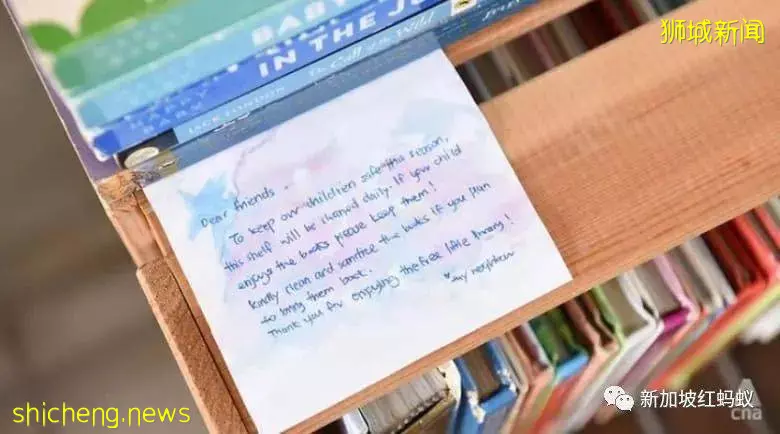 狮城新闻
BABY
IN THE JU
HAPPY
BABY
JACK LONDON The Call of the Wild
Dear friends
To keep our children safe this season,
this shelf will be cleaned daily. If your child
enjoys the books please keep them!
Kindly clean and sanitise the books if you plan
to bring them back.
Thank you for enjoying the free little library!
♥ your neighbour
shicheng.news
新加坡红蚂蚁
cna